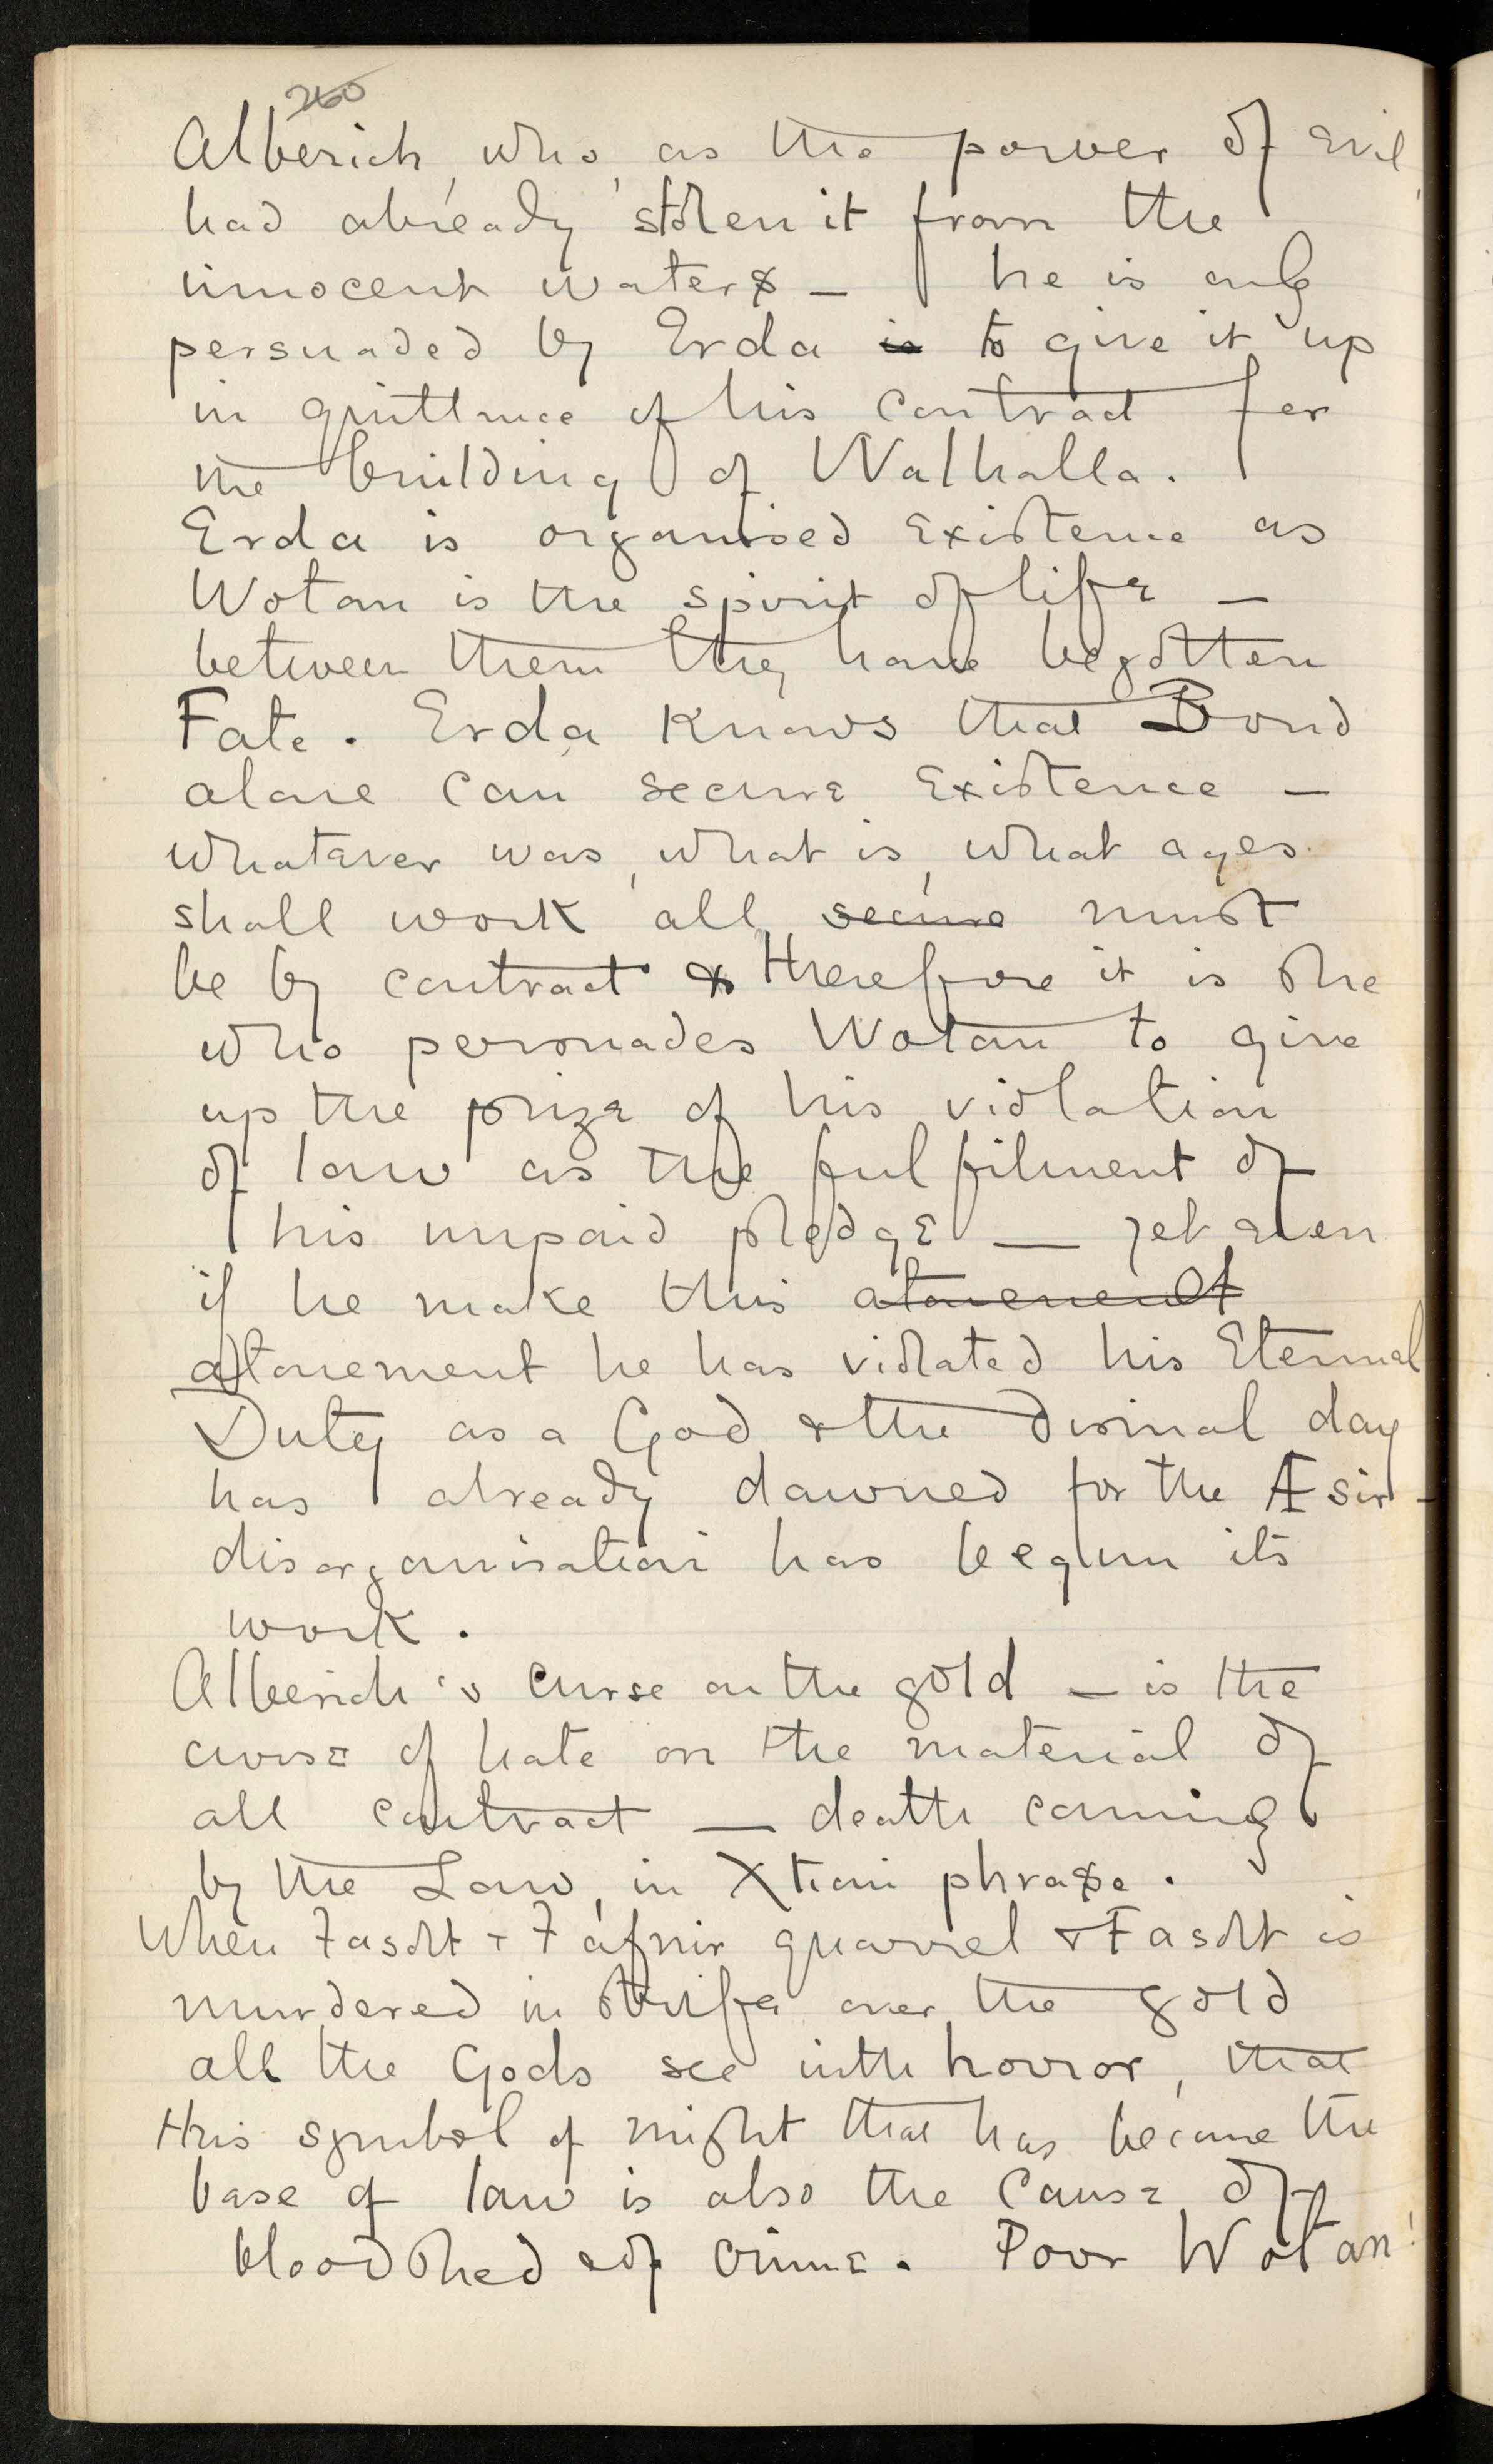 260
Alberich, who, as the power of Evil,
had already stolen it from the
innocent waters – he is only
persuaded by Erda is to give it up
in quittance of his contract for
the building of Walhalla.
Erda is organised Existence as
Wotan is the spirit of life –
between them they have begotten
Fate. Erda Knows that Bond
alone can secure Existence –
whatever was, what is, what ages
shall work all secure must
be by contract & therefore it is she
who persuades Wotan to give
up the prize of his violation
of law as the fulfilment of
his unpaid pledge — yet even
if he make this atonenemt
atonement he has violated his Eternal
Duty as a God & the dismal day
has already dawned for the Æsir –
disorganisation has begun its
work.
Alberich's curse on the gold – is the
curse of hate on the material of
all contract — death coming
by the Law, in Xtian phrase.
When Fasolt & Fafnir quarrel & Fasolt is
murdered in strife over the gold
all the Gods see with horror, that
this symbol of might that has become the
base of law is also the cause of
bloodshed & of crime. Poor Wotan!